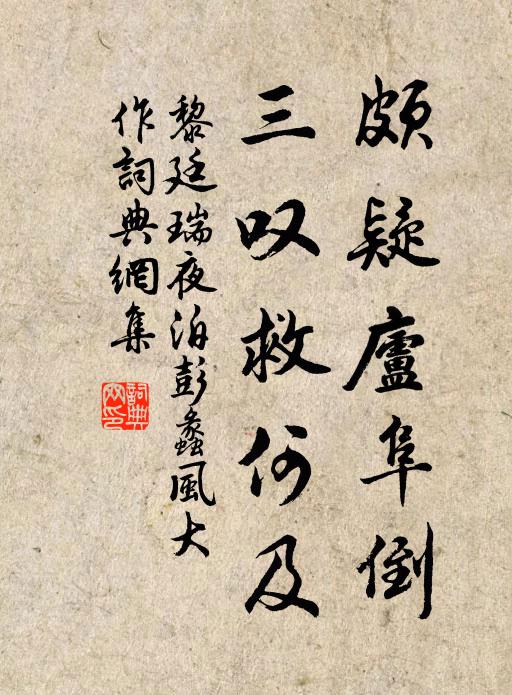 頗疑廬阜倒
三叹救何及
黎廷瑞夜泊彭蠡風大
作詞典網集
詞典網印